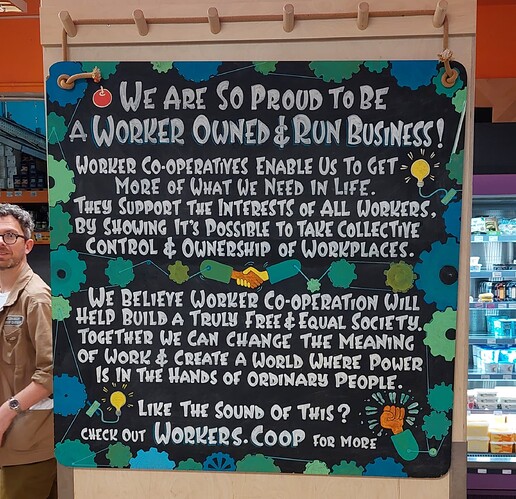 We Are So Proud To Be
A Worker Owned & Run Business!
Worker Co-operatives Enable Us To Get
More of What We Need in Life.
They Support the Interests of All Workers,
By Showing It's Possible to Take Collective
Control & Ownership of Workplaces.
We Believe Worker Co-operation Will
Help Build a Truly Free & Equal Society.
Together We Can Change the Meaning
of Work & Create a World Where Power
Is In the Hands of Ordinary People.
Like The Sound Of This?
Check Out Workers.Coop For More